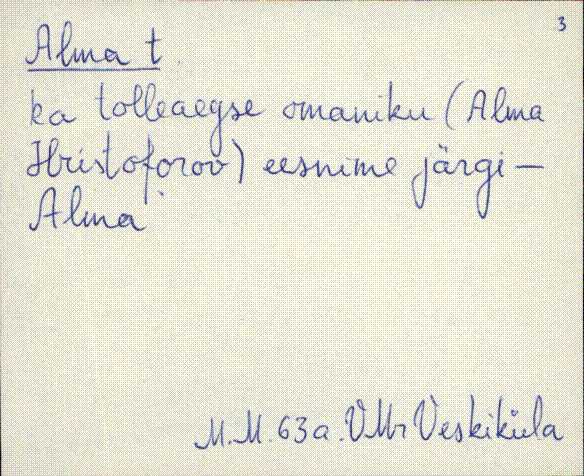 3
Alma t
ka tolleaegse omaniku (Alma
Hristoforov) eesnime järgi —
Alma
M.M. 63 a. VMr Veskiküla